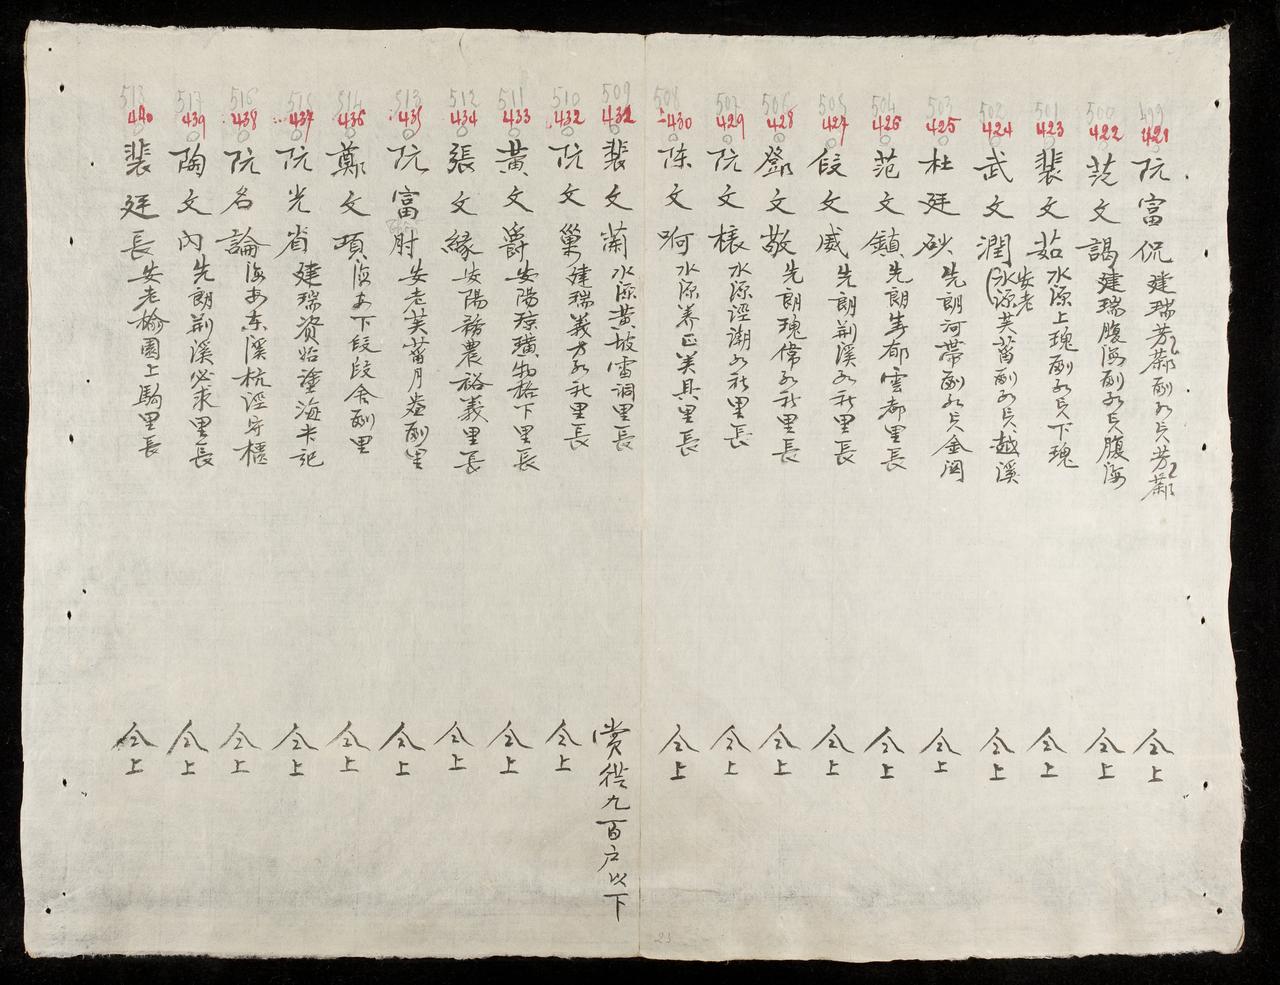 499 421 阮富侃 建瑞芳 副 芳 仝上
500 422 范文謁 建瑞腹海副 腹海 仝上
501 423 裴文茹 水源上瑰副 下瑰 仝上
502 424 武文潤 安老 水源芙蒥副 越溪 仝上
503 425 杜廷砂 先朗河帶副 金 仝上
504 426 范文鎮 先朗 郁雲都里長 仝上
505 427 段文威 先朗荆溪 社里長 仝上
506 428 鄧文敬 先朗瑰偉 社里長 仝上
507 429 阮文榱 水源涇潮 社里長 仝上
508 430 陈文啊 水源养正美具里長 仝上
509 431 裴文蘭 水源黄坡雷洞里長 賞從九百户以下
510 432 阮文巢 建瑞義方 社里長 仝上
511 433 黃文爵 安陽琼璜物格下里長 仝上
512 434 張文緣 安陽務農裕義里長 仝上
513 435 阮富肘 安老芙蒥月 副里 仝上
514 436 鄭文項 海安下段段舍副里 仝上
515 437 阮光省 建瑞资始塗海 記 仝上
516 438 阮名論 海安东溪杭涇 櫃 仝上
517 439 陶文內 先朗荆溪必求里長 仝上
513 440 裴廷長 安老榆園上 里長 仝上
23